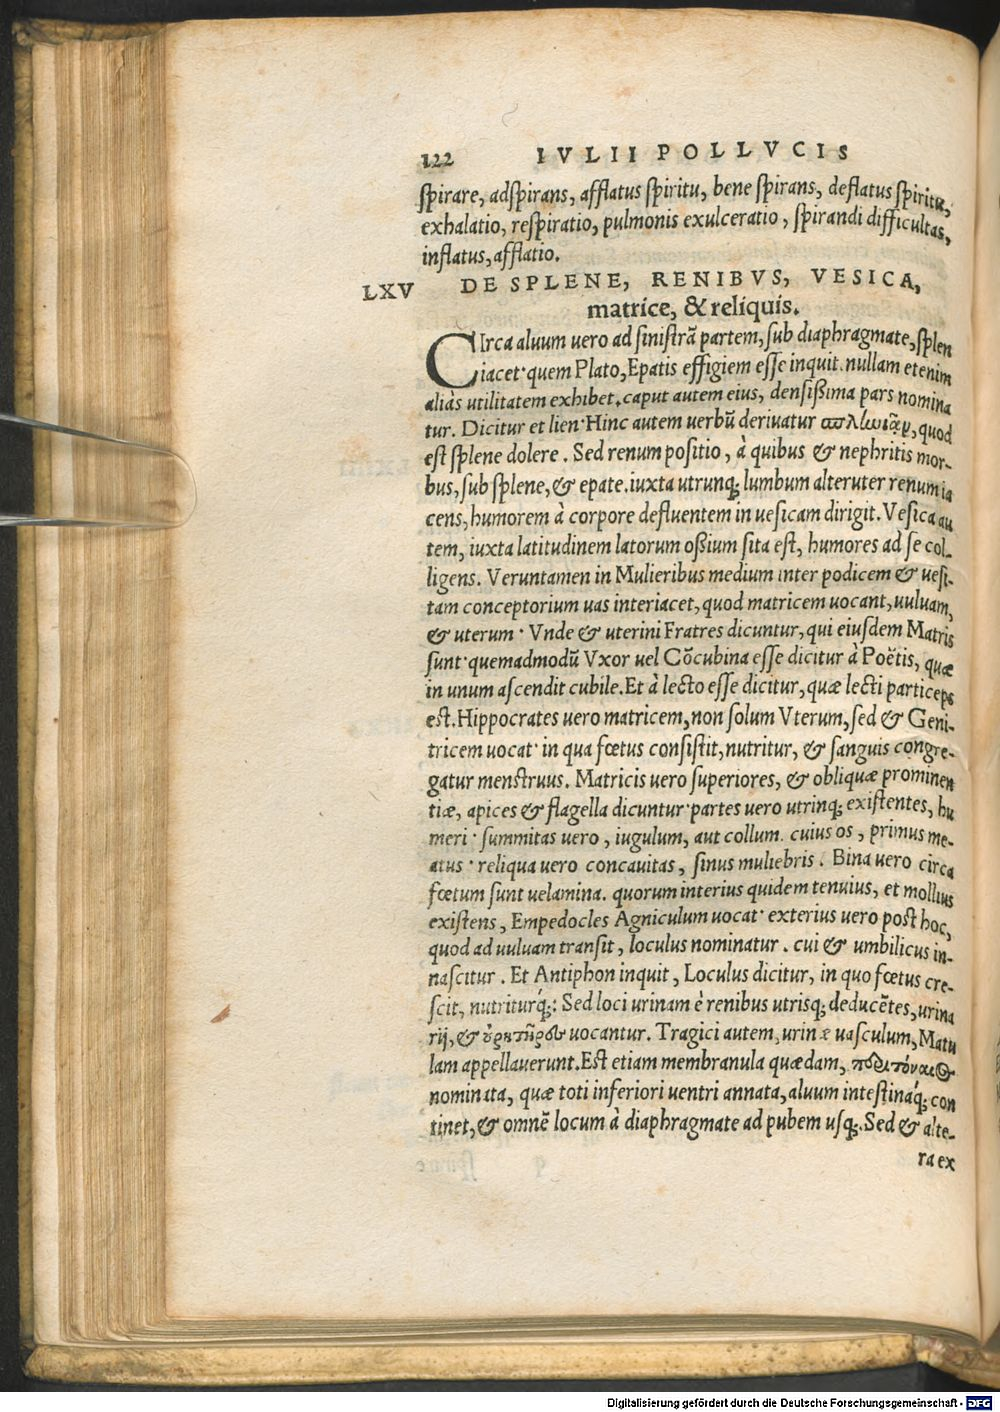 122 IVLII POLLVCIS
spirare, adspirans, afflatus spiritu, bene spirans, deflatus spiritu,
exhalatio, respiratio, pulmonis exulceratio, spirandi difficultas,
inflatus, afflatio.
LXV DE SPLENE, RENIBVS, VESICA,
matrice, & reliquis.
CIrca aluum uero ad sinistrã partem, sub diaphragmate, splen
iacet· quem Plato, Epatis effigiem esse inquit. nullam etenim
aliàs utilitatem exhibet. caput autem eius, densißima pars nomina
tur. Dicitur et lien· Hinc autem uerbũ deriuatur σπλωιᾶν, quod
est splene dolere. Sed renum positio, à quibus & nephritis mor-
bus, sub splene, & epate. iuxta utrunq; lumbum alteruter renum ia
cens, humorem à corpore defluentem in uesicam dirigit. Vesica au
tem, iuxta latitudinem latorum oßium sita est, humores ad se col-
ligens. Veruntamen in Mulieribus medium inter podicem & uesi-
tam conceptorium uas interiacet, quod matricem uocant, uuluam,
& uterum· Vnde & uterini Fratres dicuntur, qui eiusdem Matris
sunt· quemadmodũ Vxor uel Cõcubina esse dicitur à Poëtis, quæ
in unum ascendit cubile. Et à lecto esse dicitur, quæ lecti particeps
est. Hippocrates uero matricem, non solum Vterum, sed & Geni-
tricem uocat· in qua fœtus consistit, nutritur, & sanguis congre-
gatur menstruus. Matricis uero superiores, & obliquæ prominen
tiæ, apices & flagella dicuntur· partes uero utrinq; existentes, hu
meri· summitas uero, iugulum, aut collum. cuius os, primus me-
atus· reliqua uero concauitas, sinus muliebris. Bina uero circa
fœtum sunt uelamina. quorum interius quidem tenuius, et mollius
existens, Empedocles Agniculum uocat· exterius uero post hoc,
quod ad uuluam transit, loculus nominatur. cui & umbilicus in-
nascitur. Et Antiphon inquit, Loculus dicitur, in quo fœtus cre-
scit, nutriturq́;: Sed loci urinam è renibus utrisq; deducẽtes, urina
rij, & ὀρητῆρες uocantur. Tragici autem, urinæ uasculum, Matu
lam appellauerunt. Est etiam membranula quædam, περιτόναιος
nominata, quæ toti inferiori uentri annata, aluum intestinaq́; con
tinet, & omnẽ locum à diaphragmate ad pubem usq;. Sed & alte-
ra ex
Digitalisierung gefördert durch die Deutsche Forschungsgemeinschaft - DFG